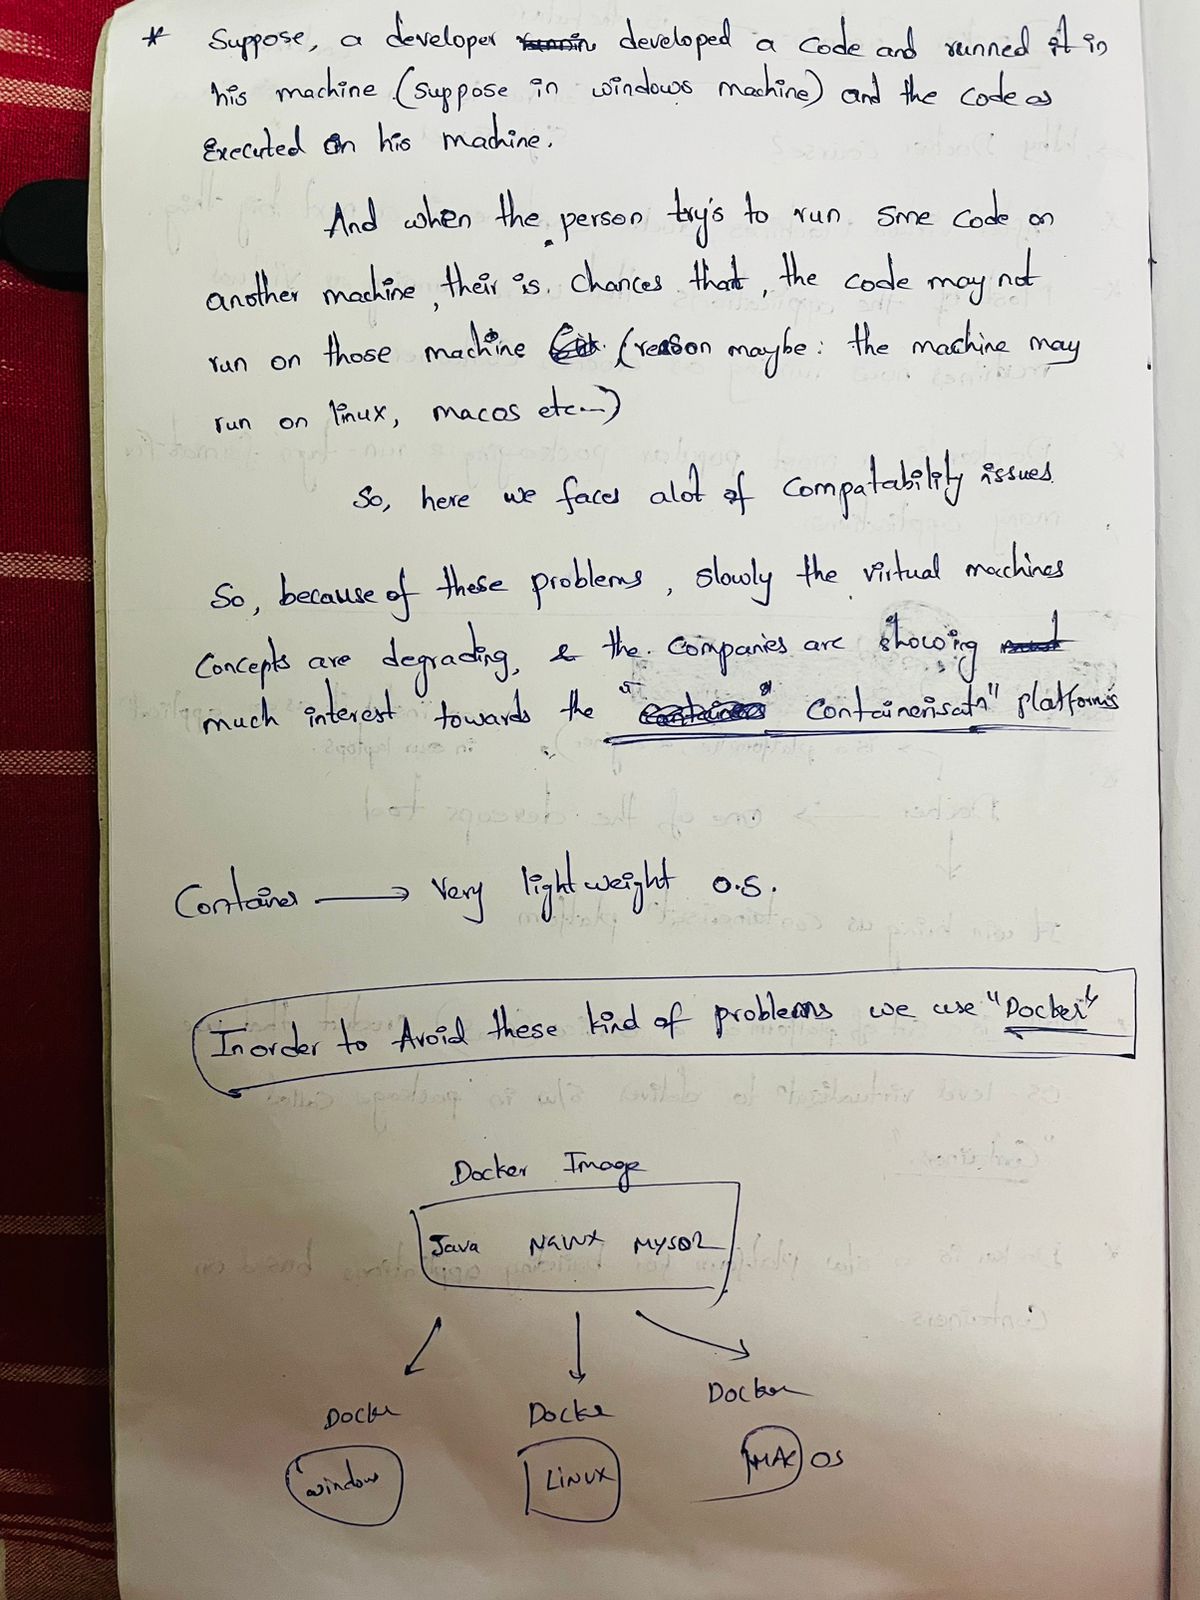 * Suppose, a developer developed a code and runned it in
his machine (suppose in windows machine) and the code is
Executed on his machine.
And when the person try's to run sme code on
another machine, their is. chances that, the code may not
run on those machine (reason maybe: the machine may
run on linux, macos etc...)
So, here we faces alot of compatability issues.
So, because of these problems, slowly the virtual machines
concepts are degrading, & the companies are showing
much interest towards the "Containerisatn" platforms
Container → Very lightweight O.S.
Inorder to Avoid these kind of problems we use "Docker"
Docker Image
Java NGINX MYSQL
Docke Docke Docker
window LINUX MAC OS